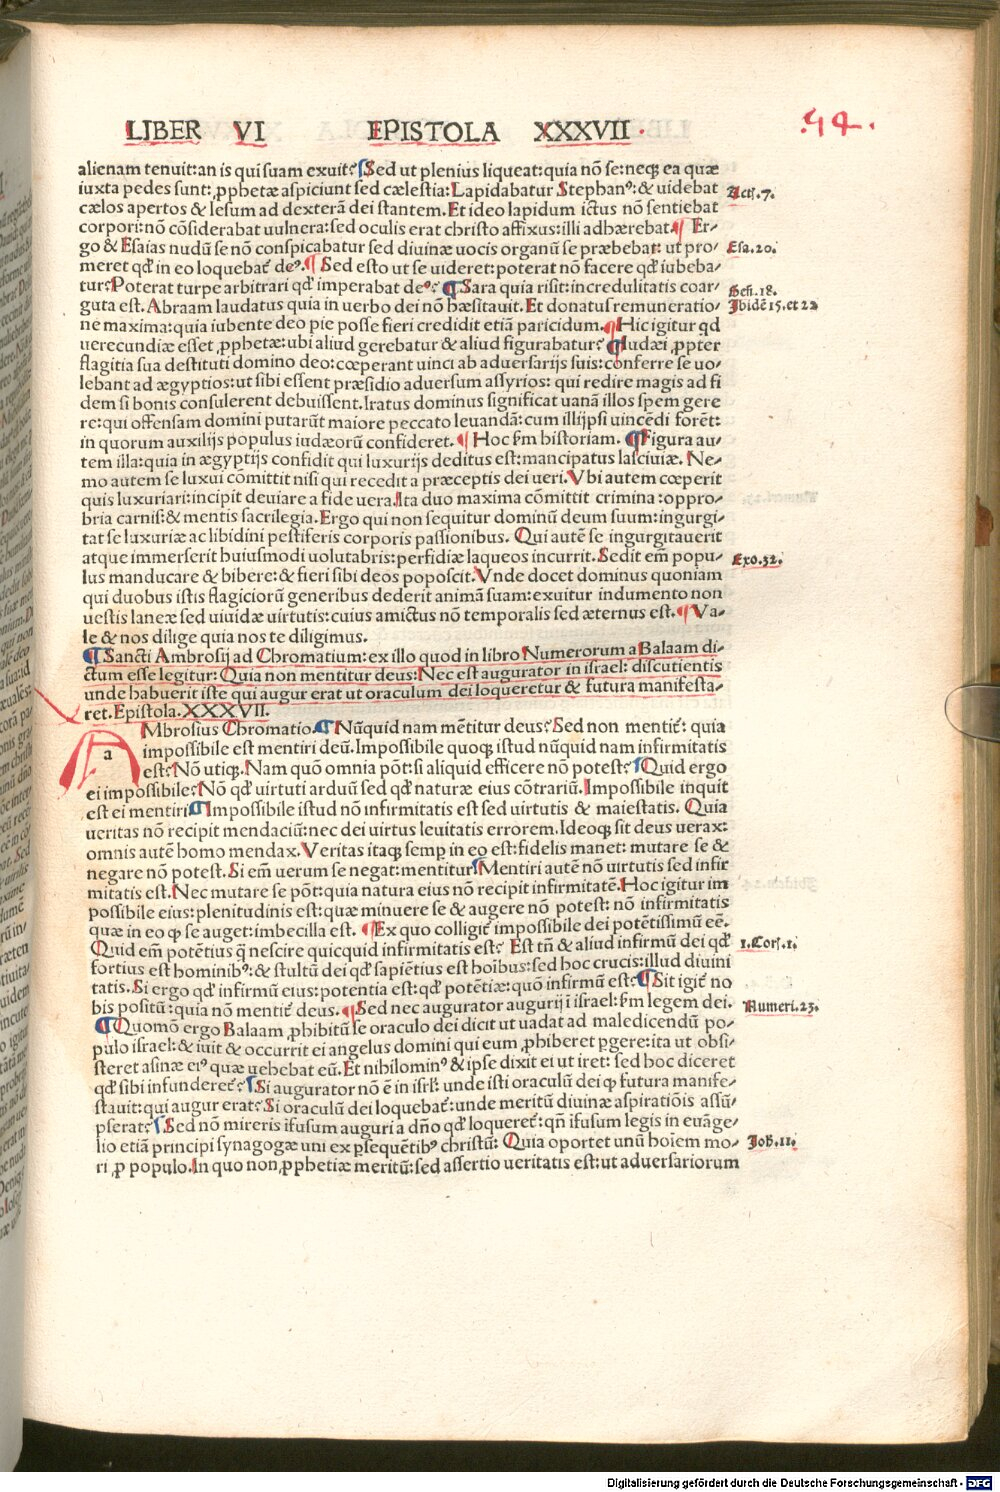 LIBER VI EPISTOLA XXXVII
.54.
alienam tenuit:an is qui suam exuit? Sed ut plenius liqueat:quia nõ se:neqꝫ ea quæ
iuxta pedes sunt:ꝓphetæ aspiciunt sed cælestia:Lapidabatur Stephanꝰ:& uidebat
Act.7.
cælos apertos & Iesum ad dexterã dei stantem.Et ideo lapidum ictus nõ sentiebat
corpori:nõ cõsiderabat uulnera:sed oculis erat christo affixus:illi adhærebat.¶ Er-
go & Esaias nudũ se nõ conspicabatur sed diuinæ uocis organũ se præbebat: ut pro-
Esa.20.
meret qđ in eo loquebat̃ deꝰ.¶ Sed esto ut se uideret:poterat nõ facere qđ iubeba-
tur?Poterat turpe arbitrari qđ imperabat deꝰ?¶ Sara quia risit:incredulitatis coar-
Geñ.18.
guta est.Abraam laudatus quia in uerbo dei nõ hæsitauit.Et donatus remuneratio-
Ibidẽ 15.et 22
ne maxima:quia iubente deo pie posse fieri credidit etiã paricidum.¶Hic igitur qđ
uerecundiæ esset ꝓphetæ:ubi aliud gerebatur & aliud figurabatur?¶Iudæi ꝓpter
flagitia sua destituti domino deo:cœperant uinci ab aduersarijs suis:conferre se uo-
lebant ad ægyptios:ut sibi essent præsidio aduersum assyrios: qui redire magis ad fi
dem si bonis consulerent debuissent.Iratus dominus significat uanã illos spem gere
re:qui offensam domini putarũt maiore peccato leuandã:cum illijpsi uincẽdi forẽt:
in quorum auxilijs populus iudæorũ confideret.¶ Hoc s̃m historiam. ¶Figura au-
tem illa:quia in ægyptijs confidit qui luxurijs deditus est:mancipatus lasciuiæ. Ne-
mo autem se luxui cõmittit nisi qui recedit a præceptis dei ueri.Vbi autem cœperit
quis luxuriari:incipit deuiare a fide uera.Ita duo maxima cõmittit crimina:oppro-
bria carnis:& mentis sacrilegia.Ergo qui non sequitur dominũ deum suum:ingurgi-
tat se luxuriæ ac libidini pestiferis corporis passionibus. Qui autẽ se ingurgitauerit
atque immerserit huiusmodi uolutabris:perfidiæ laqueos incurrit.Sedit em̃ popu-
Exo.32.
lus manducare & bibere:& fieri sibi deos poposcit.Vnde docet dominus quoniam
qui duobus istis flagiciorũ generibus dederit animã suam:exuitur indumento non
uestis laneæ sed uiuidæ uirtutis:cuius amictus nõ temporalis sed æternus est.¶Va-
le & nos dilige quia nos te diligimus.
¶ Sancti Ambrosij ad Chromatium:ex illo quod in libro Numerorum a Balaam di-
ctum esse legitur: Quia non mentitur deus:Nec est augurator in israel: discutientis
unde habuerit iste qui augur erat ut oraculum dei loqueretur & futura manifesta-
ret.Epistola.XXXVII.
a
AMbrosius Chromatio.¶ Nũquid nam mẽtitur deus?Sed non mentit̃: quia
impossibile est mentiri deũ.Impossibile quoqꝫ istud nũquid nam infirmitatis
est?Nõ utiqꝫ.Nam quõ omnia põt:si aliquid efficere nõ potest?Quid ergo
ei impossibile?Nõ qđ uirtuti arduũ sed qđ naturæ eius cõtrariũ.Impossibile inquit
est ei mentiri¶Impossibile istud nõ infirmitatis est sed uirtutis & maiestatis. Quia
ueritas nõ recipit mendaciũ:nec dei uirtus leuitatis errorem.Ideoqꝫ sit deus uerax:
omnis autẽ homo mendax.Veritas itaqꝫ semꝑ in eo est:fidelis manet: mutare se &
negare nõ potest.Si em̃ uerum se negat:mentitur Mentiri autẽ nõ uirtutis sed infir
mitatis est.Nec mutare se põt:quia natura eius nõ recipit infirmitatẽ.Hoc igitur im
possibile eius:plenitudinis est:quæ minuere se & augere nõ potest: nõ infirmitatis
quæ in eo ꝙ se auget:imbecilla est. ¶Ex quo colligit̃ impossibile dei potẽtissimũ eẽ.
Quid em̃ potẽtius q̃ nescire quicquid infirmitatis est? Est tñ & aliud infirmũ dei qđ
1.Coꝛ.1.
fortius est hominibꝰ:& stultũ dei qđ sapiẽtius est hoĩbus:sed hoc crucis:illud diuini
tatis.Si ergo qđ infirmũ eius:potentia est:qđ potẽtiæ:quõ infirmũ est?¶Sit igit̃ no
bis positũ:quia nõ mentit̃ deus.¶Sed nec augurator augurij ĩ israel:s̃m legem dei.
Numeri.23.
¶Quomõ ergo Balaam ꝓhibitũ se oraculo dei dicit ut uadat ad maledicendũ po-
pulo israel:& iuit & occurrit ei angelus domini qui eum ꝓhiberet ꝑgere:ita ut obsi-
steret asinæ eiꝰ quæ uehebat eũ.Et nihilominꝰ & ipse dixit ei ut iret: sed hoc diceret
qđ sibi infunderet̃?Si augurator nõ ẽ in isrl̃: unde isti oraculũ dei ꝙ futura manife-
stauit:qui augur erat?Si oraculũ dei loquebat̃:unde meritũ diuinæ aspiratiõis assũ-
pserat? Sed nõ mireris ifusum auguri a dño qđ loqueret̃:qñ ifusum legis in euãge-
lio etiã principi synagogæ uni ex ꝑsequẽtibꝰ christũ: Quia oportet unũ hoĩem mo-
Joh.11.
ri ꝓ populo.In quo non ꝓphetiæ meritũ:sed assertio ueritatis est:ut aduersariorum
Digitalisierung gefördert durch die Deutsche Forschungsgemeinschaft - DFG